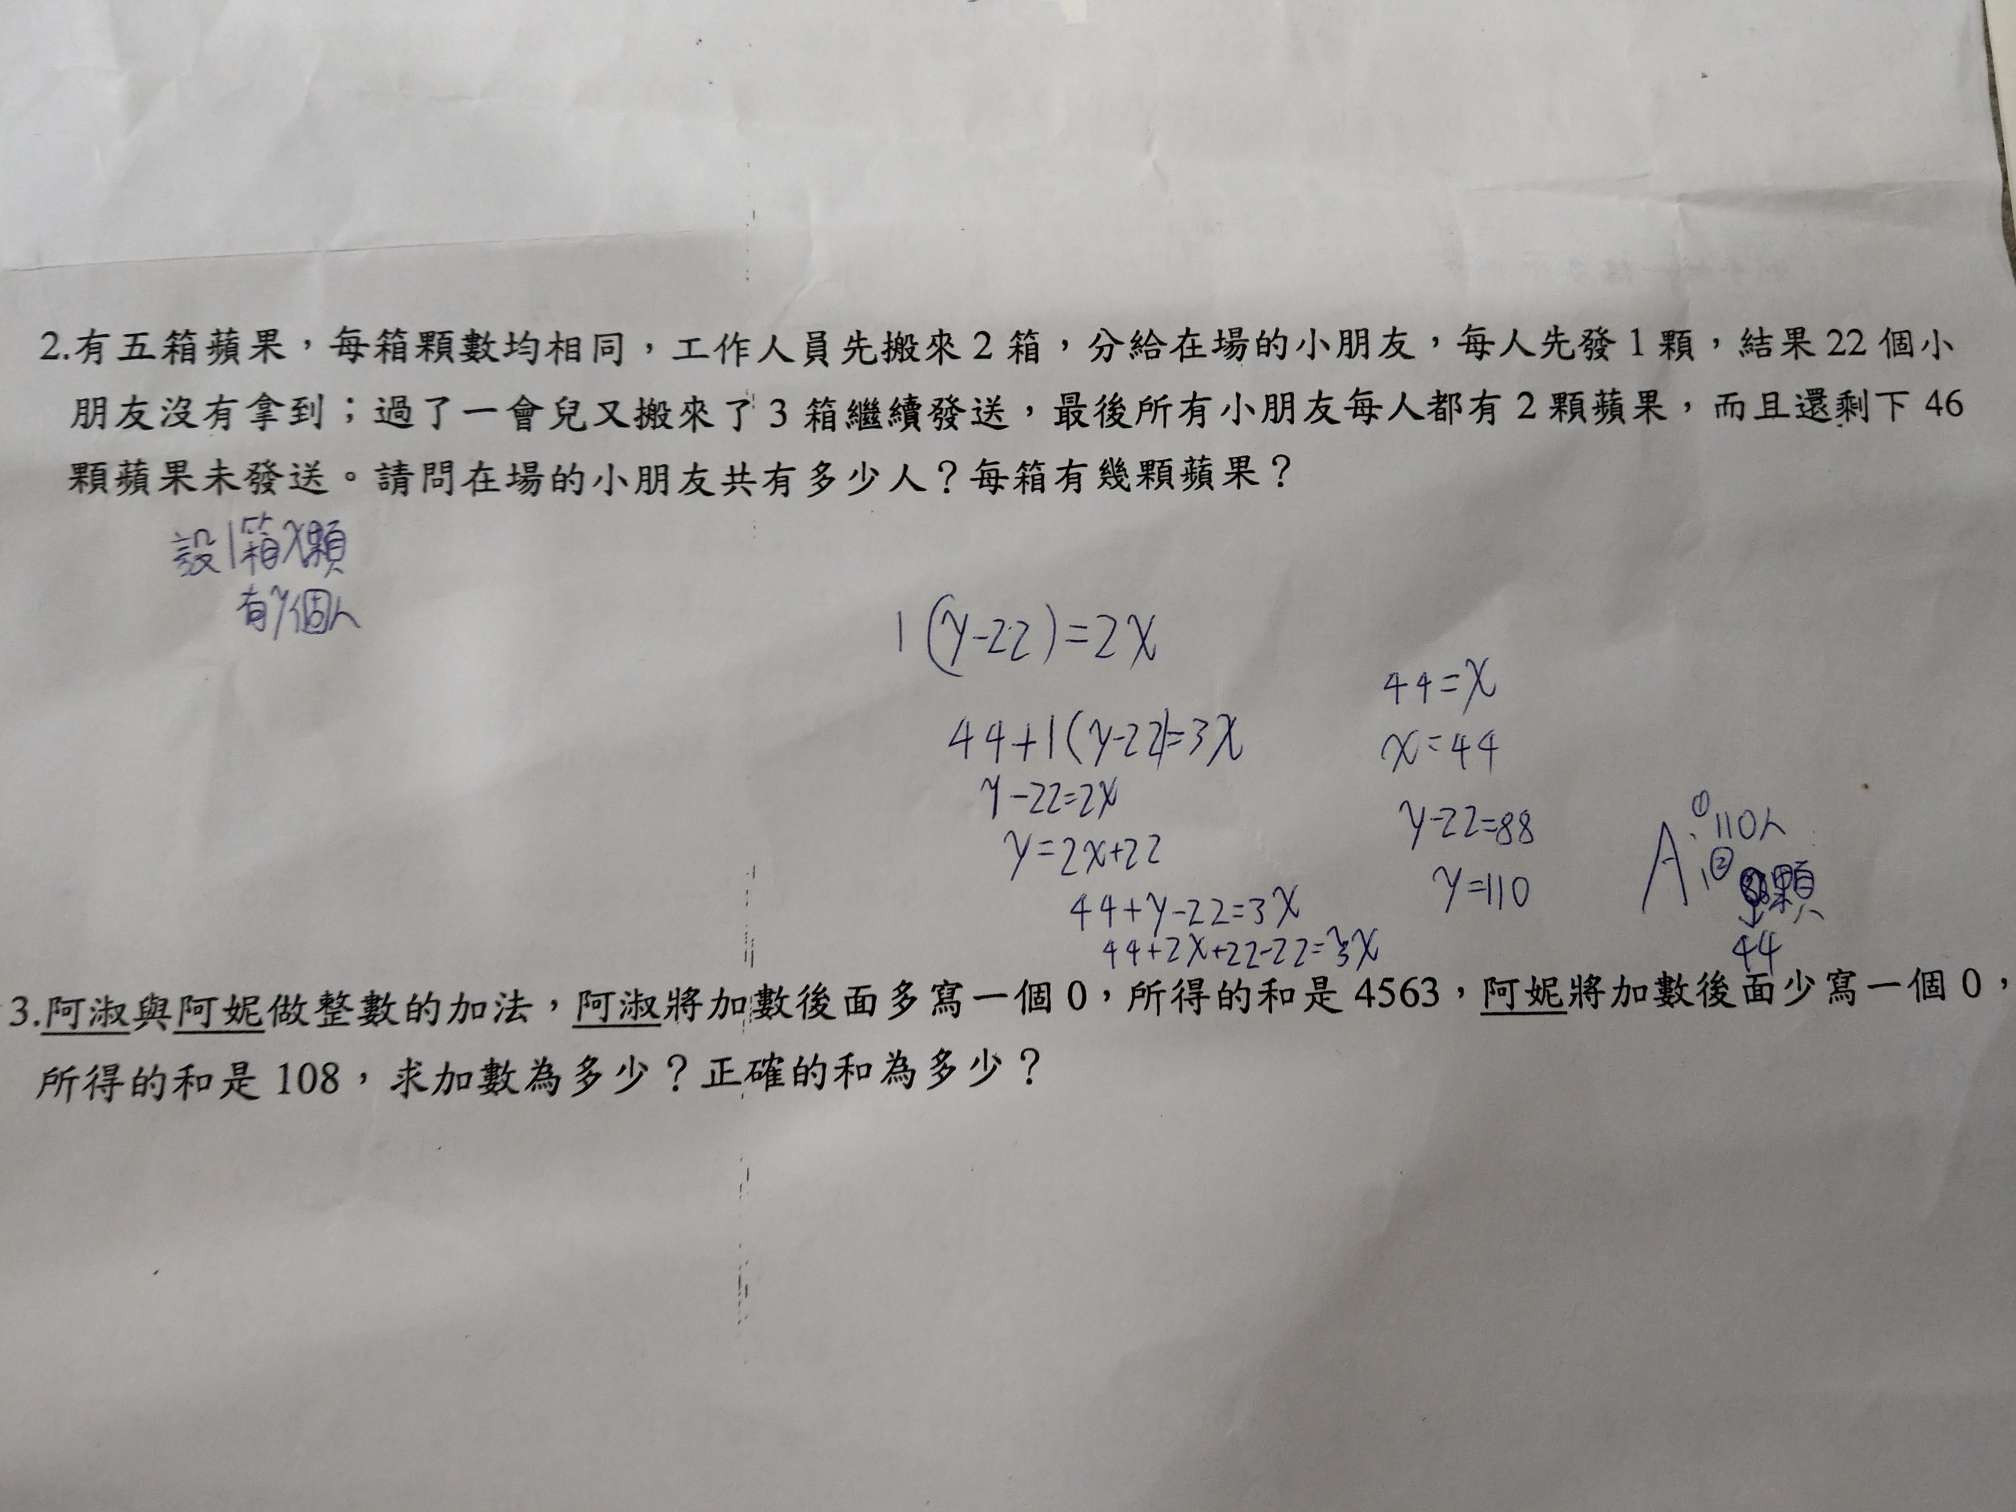 2.有五箱蘋果，每箱顆數均相同，工作人員先搬來 2 箱，分給在場的小朋友，每人先發 1 顆，結果 22 個小
朋友沒有拿到；過了一會兒又搬來了 3 箱繼續發送，最後所有小朋友每人都有 2 顆蘋果，而且還剩下 46
顆蘋果未發送。請問在場的小朋友共有多少人？每箱有幾顆蘋果？
設1箱x顆
有y個人
1(y-22)=2x
44+1(y-22)=3x
y-22=2x
y=2x+22
44+y-22=3x
44+2x+22-22=3x
44=x
x=44
y-22=88
y=110
A:①110人
②顆
44
3.阿淑與阿妮做整數的加法，阿淑將加數後面多寫一個 0，所得的和是 4563，阿妮將加數後面少寫一個 0，
所得的和是 108，求加數為多少？正確的和為多少？